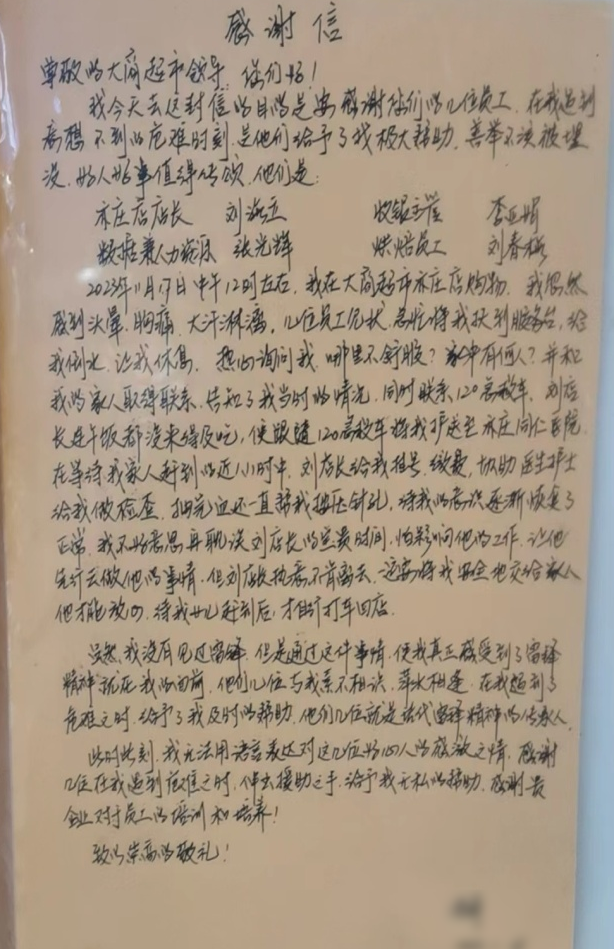 感谢信
尊敬的大商超市领导，你们好！
我今天去这封信的目的是要感谢你们的几位员工，在我遇到
意想不到的危难时刻，是他们给予了我极大帮助，善举不该被埋
没，好人好事值得传颂，他们是：
亦庄店店长 刘海立 收银主管 李亚娟
数据兼人力资源 张光辉 烘焙员工 刘春梅
2023年11月17日中午12时左右，我在大商超市亦庄店购物，我忽然
感到头晕，胸痛，大汗淋漓，几位员工见状，急忙将我扶到服务台，给
我倒水，让我休息，热心询问我，哪里不舒服？家中有何人？并和
我的家人取得联系，告知了我当时的情况，同时联系120急救车，刘店
长连午饭都没来得及吃，便跟随120急救车将我护送至亦庄同仁医院，
在等待我家人赶到的近1小时中，刘店长给我挂号，缴费，协助医生护士
给我做检查，抽完血还一直帮我按压针孔，待我的意识逐渐恢复了
正常，我不好意思再耽误刘店长的宝贵时间，怕影响他的工作，让他
先行去做他的事情，但刘店长执意不肯离去，一定要将我安全地交给家人
他才能放心，待我女儿赶到后，才自行打车回店。
虽然，我没有见过雷锋，但是通过这件事情，使我真正感受到了雷锋
精神就在我的面前，他们几位与我素不相识，萍水相逢，在我遇到了
危难之时，给予了我及时的帮助，他们几位就是当代雷锋精神的传承人
此时此刻，我无法用语言表达对这几位好心人的感激之情，感谢
几位在我遇到危难之时，伸出援助之手，给予我无私的帮助，感谢贵
企业对于员工的培训和培养！
致以崇高的敬礼！